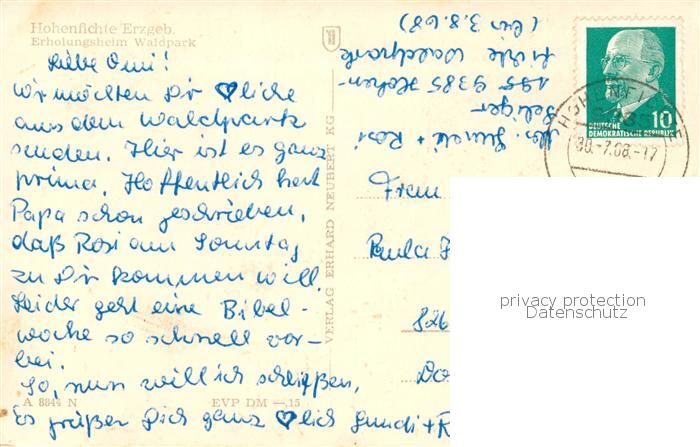 Hohenfichte Erzgeb.
Erholungsheim Waldpark
Liebe Omi!
Wir möchten Dir ♡liche
aus dem Waldpark
senden. Hier ist es ganz
prima. Hoffentlich hat
Papa schon geschrieben,
daß Rosi am Sonntag
zu Dir kommen will.
Leider geht eine Bibel-
woche so schnell vor-
bei.
So, nun will ich schließen,
Es grüßen Dich ganz ♡lich Gundi + R
A 8844 N
EVP DM —.15
VERLAG ERHARD NEUBERT KG
Abs. Gundi + Rosi
Seliger
9385 Hohen-
fichte Waldpark
(bis 3.8.68)
Frau
Paula
DEUTSCHE
DEMOKRATISCHE REPUBLIK
10
HOHENFI
30.-7.68.-17
privacy protection
Datenschutz